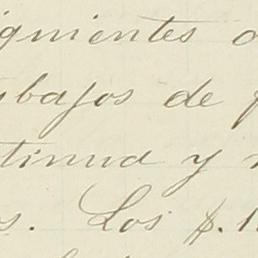 iguientes
abajos de
tinua y
os. Los $.1